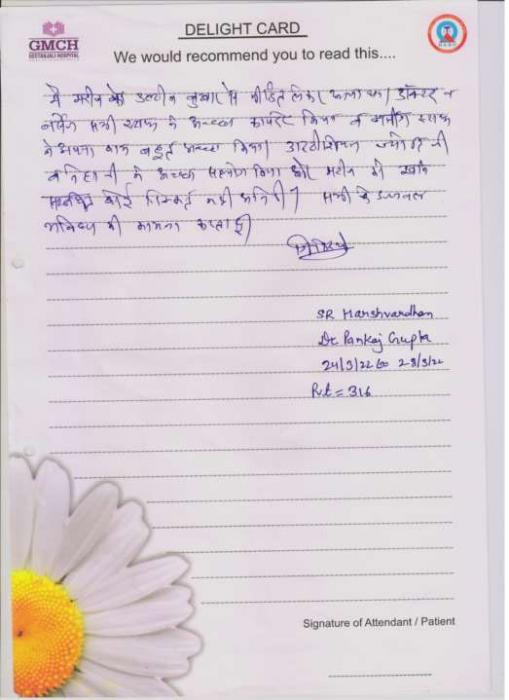 DELIGHT CARD
GMCH
GEETANJALI HOSPITAL
We would recommend you to read this....
मै मरीज को उल्टी व बुखार से पीडित लेकर आया था। डॉक्टर व
नर्सिंग सभी स्टाफ ने अच्छा किया व स्टाफ
ने अपना काम बहुत अच्छा किया। ज्योति जी
व जी ने अच्छा सहयोग किया और मरीज को
कोई दिक्कत नही आने दी। सभी के उज्जवल
भविष्य की कामना करता हूँ।
SR Harshvardhan
Dr Pankaj Gupta
24/3/22 to 28/3/22
Rt = 316
Signature of Attendant / Patient